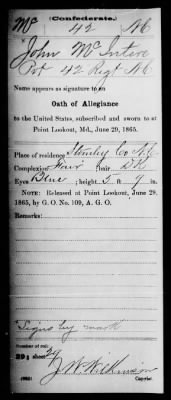 (Confederate.)
Mc 42 NC
John McIntire
Pvt 42 Regt NC
Name appears as signature to an
Oath of Allegiance
to the United States, subscribed and sworn to at
Point Lookout, Md., June 29, 1865.
Place of residence Stanley Co NC
Complexion Fair; hair D B
Eyes Blue; height 5 ft. 9 in.
NOTE: Released at Point Lookout, June 29,
1865, by G. O. No. 109, A. G. O.
Remarks:
Signs by mark
Number of roll:
291; sheet
J. W. Wilkinson
Copyist.